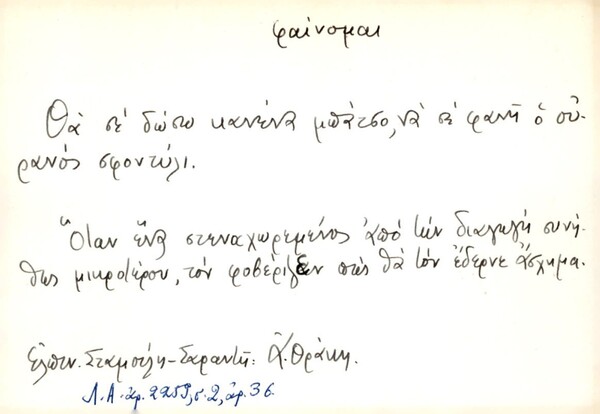 φαίνομαι
Θὰ σὲ δώσω κανένα μπάτσο, νὰ σὲ φανῇ ὁ οὐ-
ρανὸς σφοντύλι.
Ὅταν ἕνας στεναχωρεμένος ἀπὸ τὴν διαγωγὴ συνή-
θως μικροτέρου, τὸν φοβέριζεν πὼς θὰ τὸν ἔδερνε ἄσχημα.
Ἐλπιν. Σταμούλη-Σαραντῆ: Ἀ. Θράκη.
Λ.Α. ἀρ. 2259, σ. 2, ἀρ. 36.